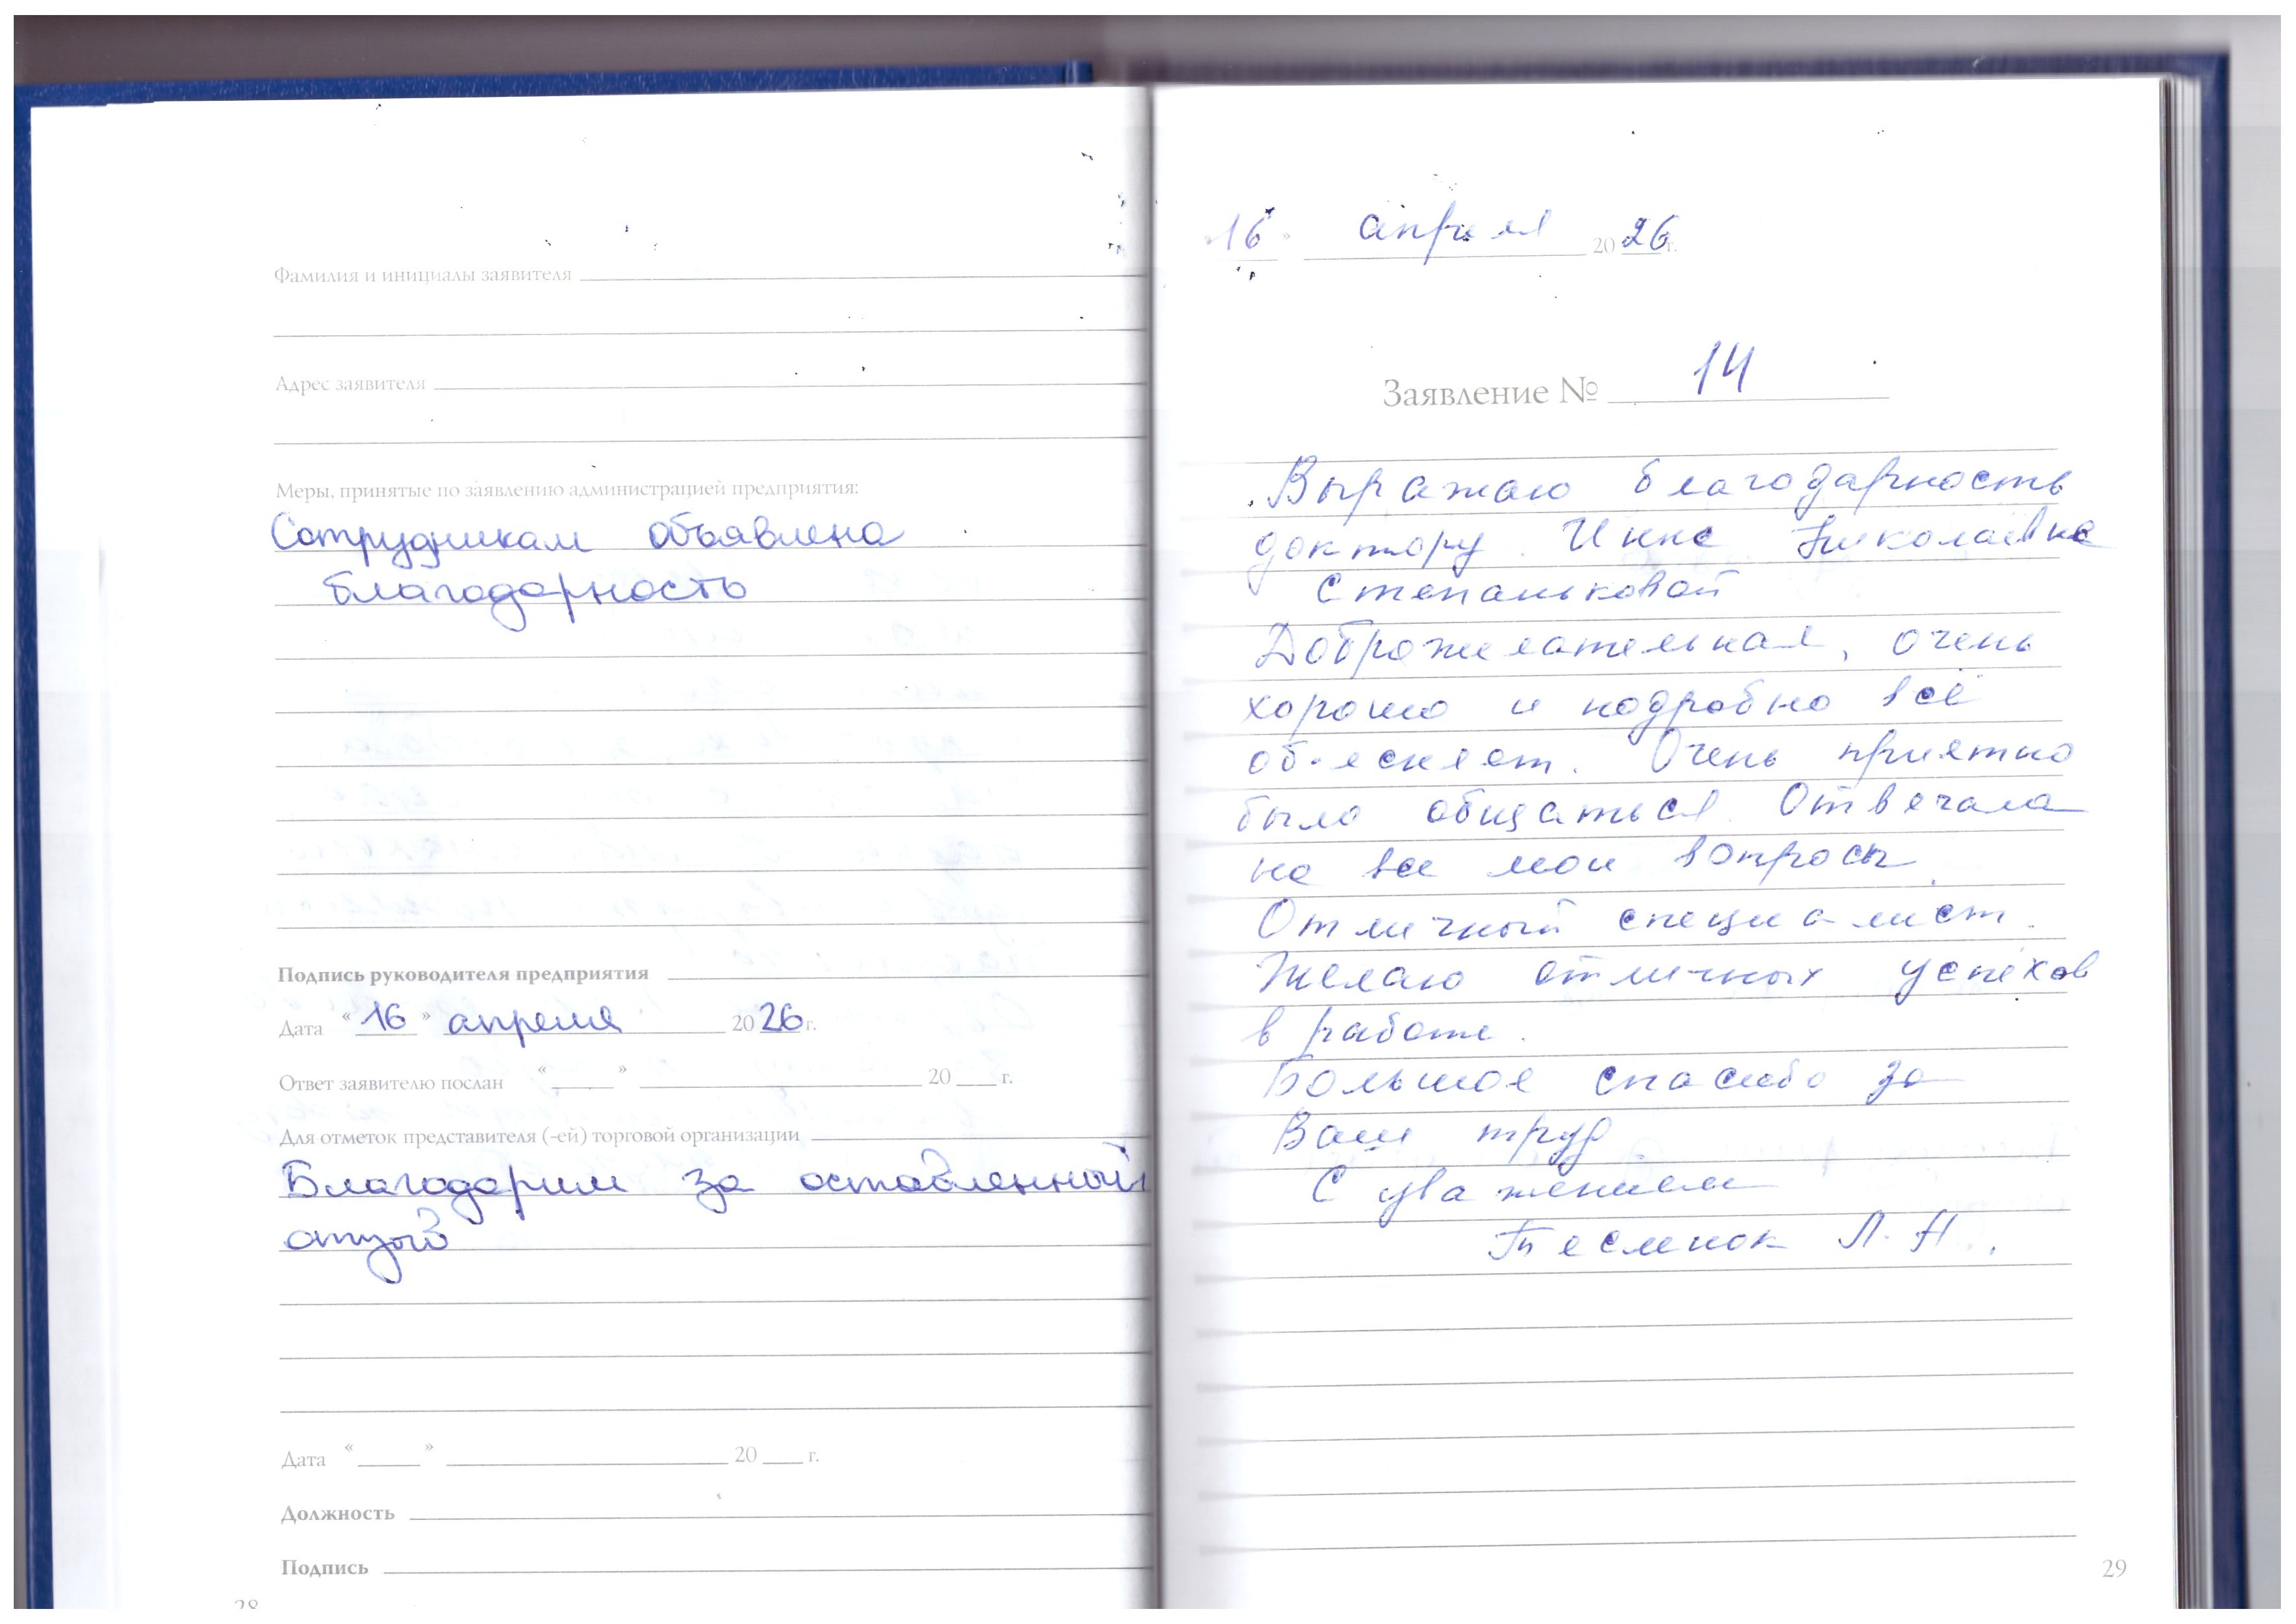 Фамилия и инициалы заявителя
Адрес заявителя
Меры, принятые по заявлению администрацией предприятия:
Сотрудникам объявлена
благодарность
Подпись руководителя предприятия
Дата «16» апреля 2026 г.
Ответ заявителю послан «    » 20    г.
Для отметок представителя (-ей) торговой организации
Благодарим за оставленный
отзыв
Дата «    » 20    г.
Должность
Подпись
28
16 » апреля 2026 г.
Заявление № 14
Выражаю благодарность
доктору Инне Николаевне
Степаньковой
Доброжелательная, очень
хорошо и подробно всё
об'ясняет. Очень приятно
было общаться. Отвечала
на все мои вопросы.
Отличный специалист.
Желаю отличных успехов
в работе.
Большое спасибо за
Ваш труд
С уважением
Л. Н.
29